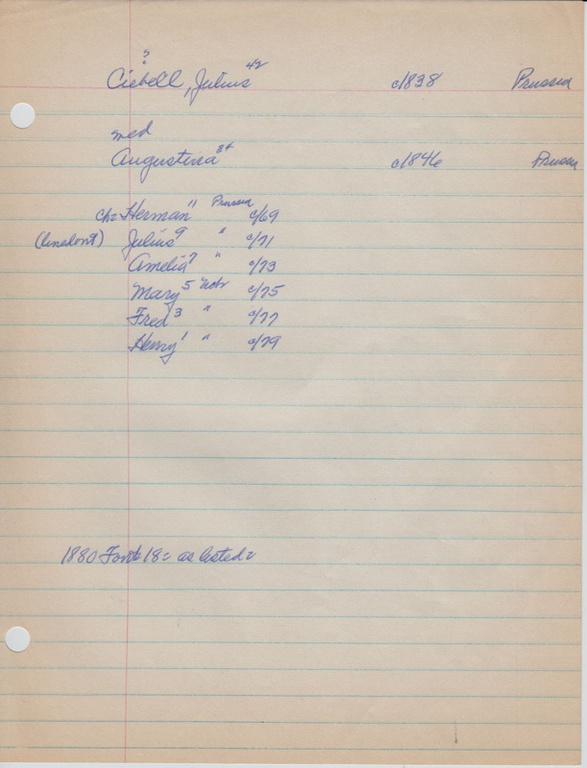 ?
Ciebell, Julius 42 c1838 Prussia
med
Augustina 34 c1846 Prussia
ch= Herman 11 Prussia c/69
Julius 9 " c/71
Amelia 7 " c/73
Mary 5 Nebr c/75
Fred 3 " c/77
Henry 1 " c/79
1880 18= as listed=